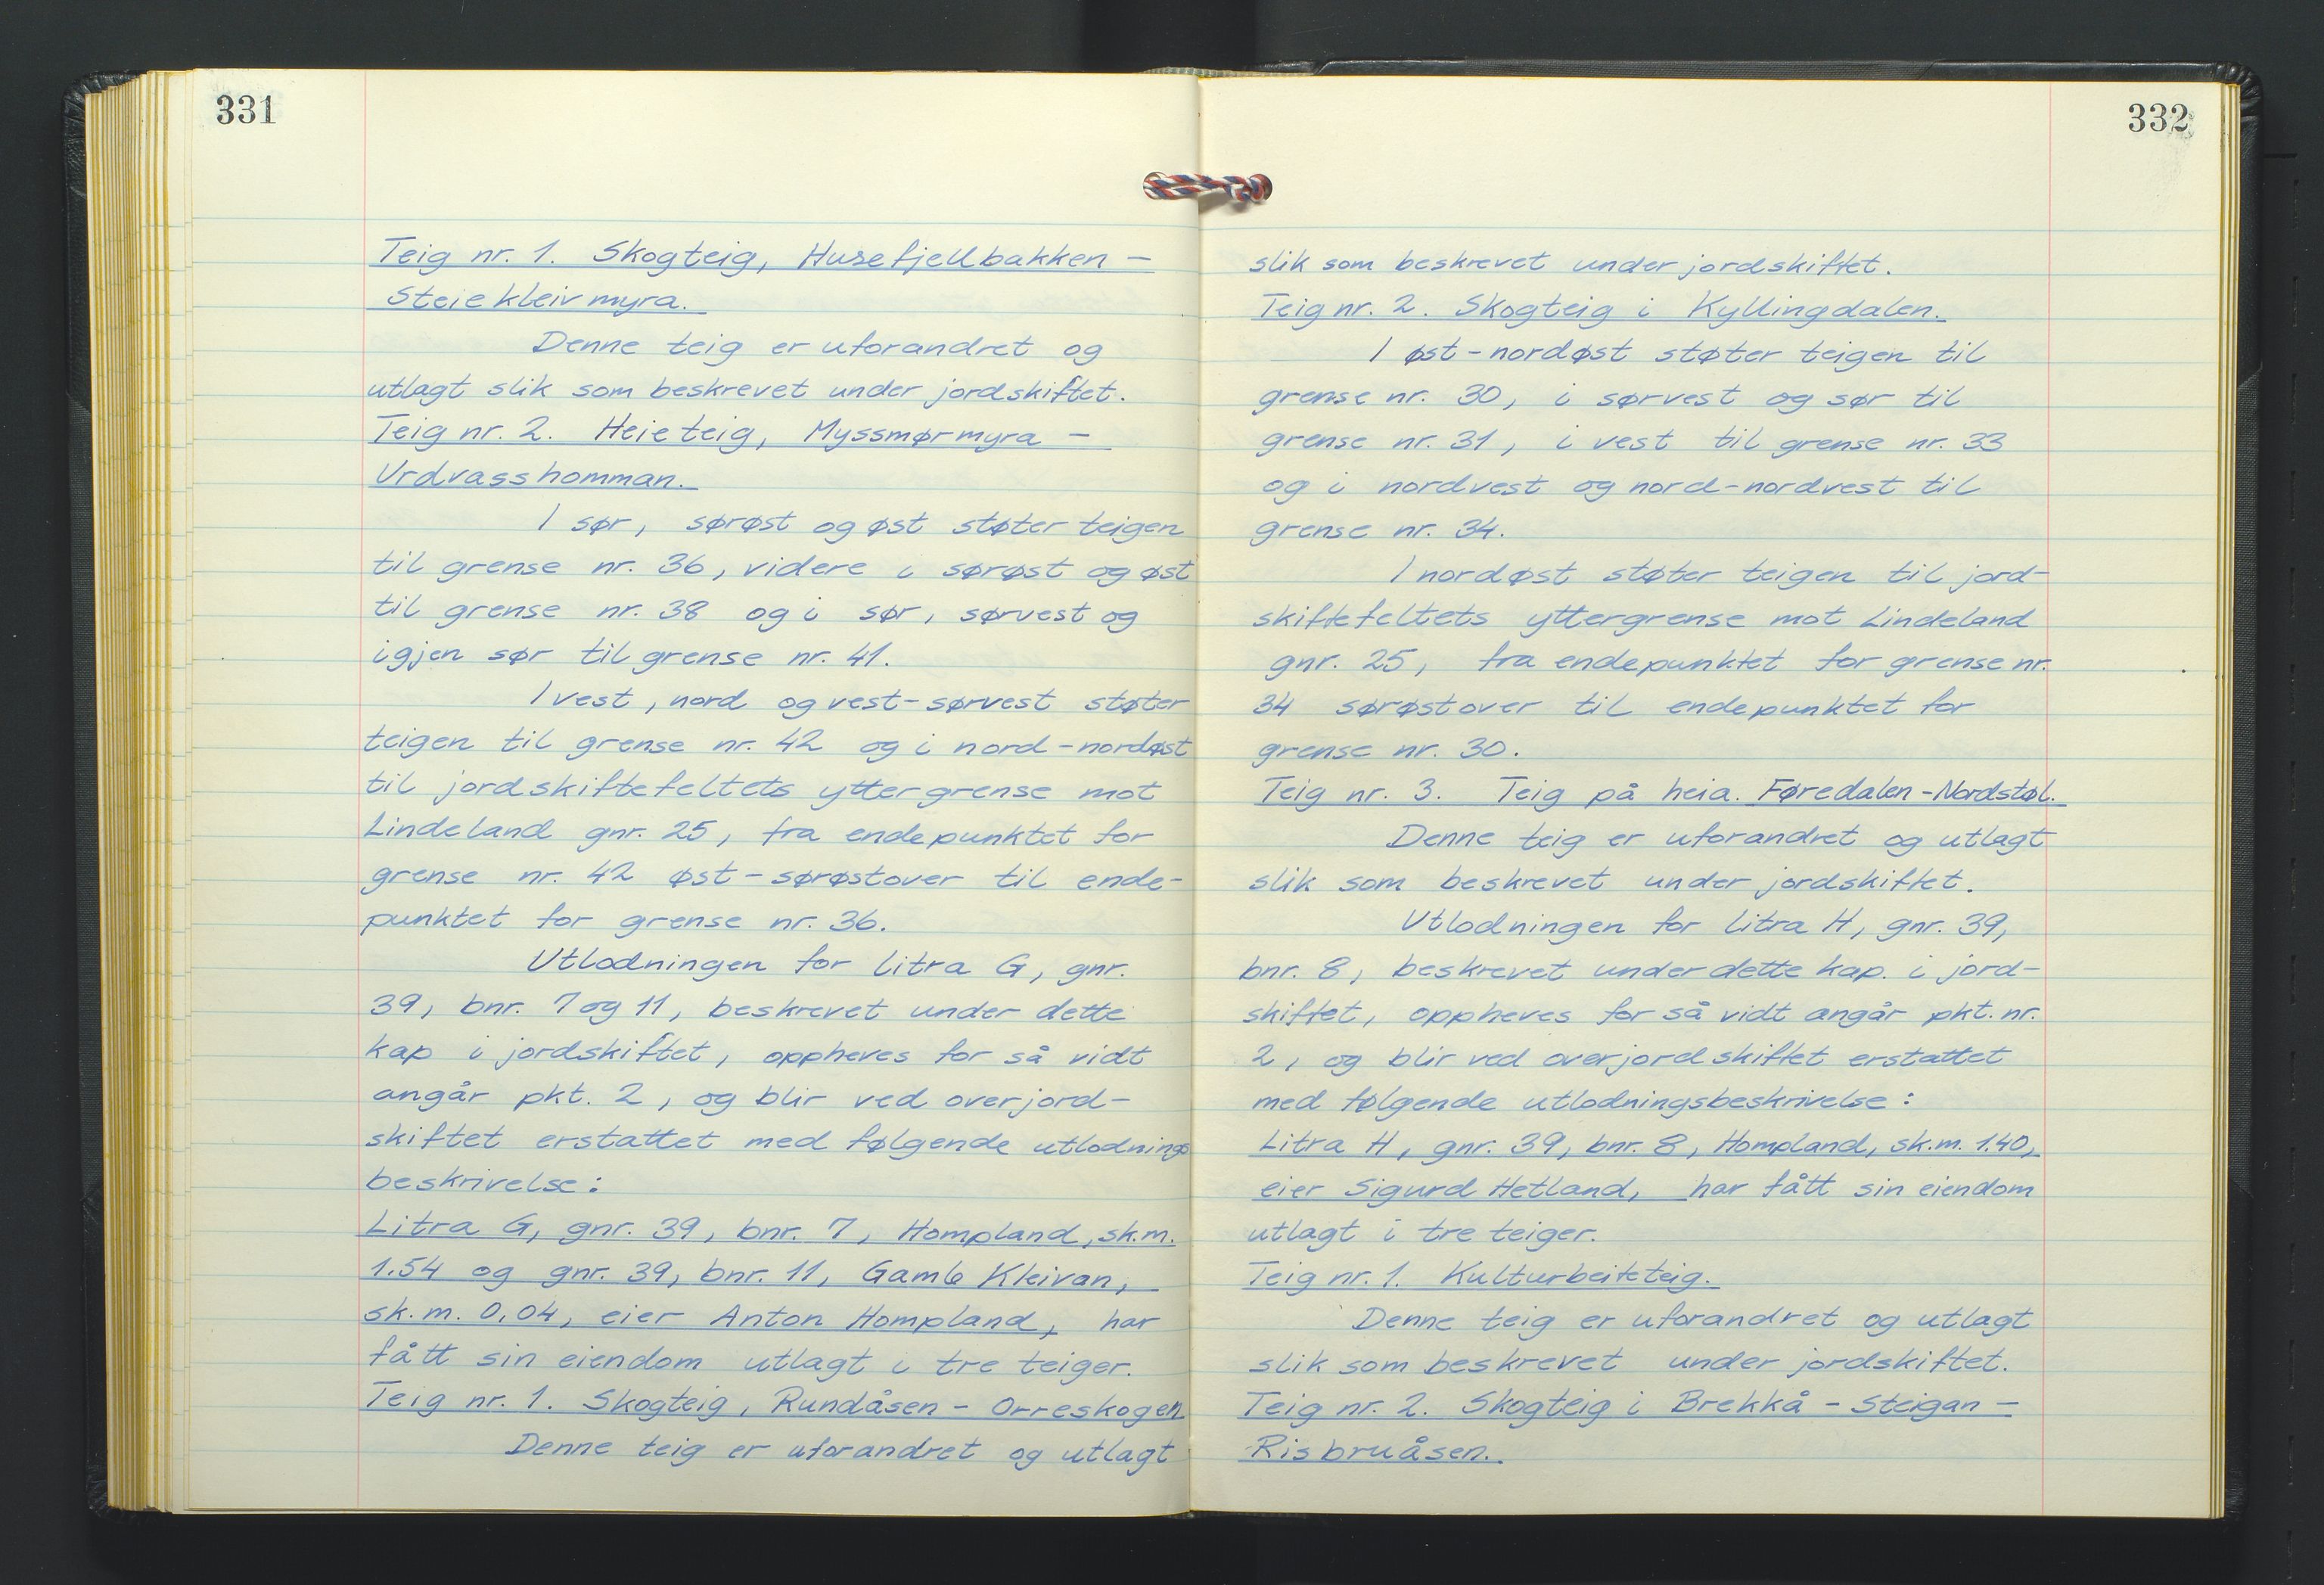 331
Teig nr. 1. Skogteig, Husefjellbakken -
Steiekleivmyra.
Denne teig er uforandret og
utlagt slik som beskrevet under jordskiftet.
Teig nr. 2. Heieteig, Myssmørmyra -
Urdvasshomman.
I sør, sørøst og øst støter teigen
til grense nr. 36, videre i sørøst og øst
til grense nr. 38 og i sør, sørvest og
igjen sør til grense nr. 41.
I vest, nord og vest-sørvest støter
teigen til grense nr. 42 og i nord-nordøst
til jordskiftefeltets yttergrense mot
Lindeland gnr. 25, fra endepunktet for
grense nr. 42 øst-sørøstover til ende-
punktet for grense nr. 36.
Utlodningen for litra G, gnr.
39, bnr. 7 og 11, beskrevet under dette
kap i jordskiftet, oppheves for så vidt
angår pkt. 2, og blir ved overjord-
skiftet erstattet med følgende utlodnings
beskrivelse:
Litra G, gnr. 39, bnr. 7, Hompland, sk.m.
1.54 og gnr. 39, bnr. 11, Gamle Kleivan,
sk.m. 0,04, eier Anton Hompland, har
fått sin eiendom utlagt i tre teiger.
Teig nr. 1. Skogteig, Rundåsen - Orreskogen
Denne teig er uforandret og utlagt
332
slik som beskrevet under jordskiftet.
Teig nr. 2. Skogteig i Kyllingdalen.
I øst-nordøst støter teigen til
grense nr. 30, i sørvest og sør til
grense nr. 31, i vest til grense nr. 33
og i nordvest og nord-nordvest til
grense nr. 34.
I nordøst støter teigen til jord-
skiftefeltets yttergrense mot Lindeland
gnr. 25, fra endepunktet for grense nr.
34 sørøstover til endepunktet for
grense nr. 30.
Teig nr. 3. Teig på heia. Føredalen-Nordstøl.
Denne teig er uforandret og utlagt
slik som beskrevet under jordskiftet.
Utlodningen for litra H, gnr. 39,
bnr. 8, beskrevet under dette kap. i jord-
skiftet, oppheves for så vidt angår pkt. nr.
2, og blir ved overjordskiftet erstattet
med følgende utlodningsbeskrivelse:
Litra H, gnr. 39, bnr. 8, Hompland, sk.m. 1.40,
eier Sigurd Hetland, har fått sin eiendom
utlagt i tre teiger.
Teig nr. 1. Kulturbeiteteig.
Denne teig er uforandret og utlagt
slik som beskrevet under jordskiftet.
Teig nr. 2. Skogteig i Brekkå - Steigan -
Risbruåsen.